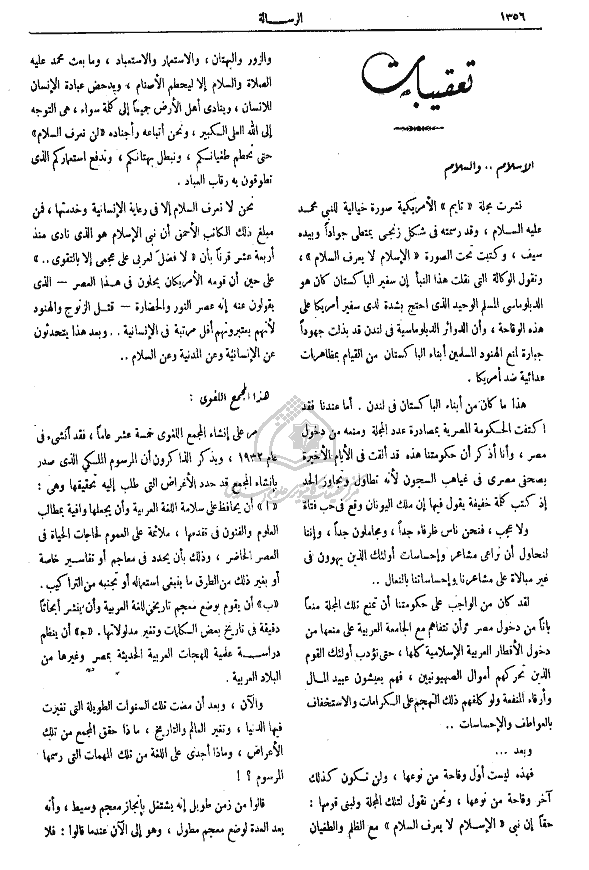 ١٣٥٦
الرسالة
تعقيبات
الإسلام .. والسلام
نشرت مجلة « تايم » الأمريكية صورة خيالية للنبي محمد
عليه السلام ، وقد رسمته في شكل زنجي يمتطي جواداً وبيده
سيف ، وكتبت تحت الصورة « الإسلام لا يعرف السلام » ،
وتقول الوكالة التي نقلت هذا النبأ إن سفير الباكستان كان هو
الدبلوماسي المسلم الوحيد الذي احتج بشدة لدى سفير أمريكا على
هذه الوقاحة ، وأن الدوائر الدبلوماسية في لندن قد بذلت جهوداً
جبارة لمنع الهنود المسلمين أبناء الباكستان من القيام بمظاهرات
عدائية ضد أمريكا .
هذا ما كان من أبناء الباكستان في لندن . أما عندنا فقد
اكتفت الحكومة المصرية بمصادرة عدد المجلة ومنعه من دخول
مصر ، وأنا أذكر أن حكومتنا هذه قد ألقت في الأيام الأخيرة
بصحفي مصري في غياهب السجون لأنه تطاول وتجاوز الحد
إذ كتب كلمة خفيفة يقول فيها إن ملك اليونان وقع في حب فتاة
ولا عجب ، فنحن ناس ظرفاء جداً ، ومجاملون جداً ، وإننا
لنحاول أن نراعي مشاعر وإحساسات أولئك الذين يهوون في
غير مبالاة على مشاعرنا وإحساساتنا بالنعال ..
لقد كان من الواجب على حكومتنا أن تمنع تلك المجلة منعاً
باتاً من دخول مصر وأن تتفاهم مع الجامعة العربية على منعها من
دخول الأقطار العربية الإسلامية كلها ، حتى تؤدب أولئك القوم
الذين تحركهم أموال الصهيونيين ، فهم يعيشون عبيد المال
وأرقاء المنفعة ولو كلفهم ذلك التهجم على الكرامات والاستخفاف
بالعواطف والإحساسات ..
وبعد ...
فهذه ليست أول وقاحة من نوعها ، ولن تكون كذلك
آخر وقاحة من نوعها ، ونحن نقول لتلك المجلة ولبني قومها :
حقاً إن نبي « الإسلام لا يعرف السلام » مع الظلم والطغيان
والزور والبهتان ، والاستعمار والاستعباد ، وما بعث محمد عليه
الصلاة والسلام إلا ليحطم الأصنام ، ويدحض عبادة الإنسان
للانسان ، وينادي أهل الأرض جميعاً إلى كلمة سواء ، هي التوجه
إلى الله العلي الكبير ، ونحن أتباعه وأجناده « لن نعرف السلام »
حتى نحطم طغيانكم ، ونبطل بهتانكم ، وندفع استعماركم الذي
تطوقون به رقاب العباد .
نحن لا نعرف السلام إلا في رعاية الإنسانية وخدمتها ، فمن
مبلغ ذلك الكاتب الأحمق أن نبي الإسلام هو الذي نادى منذ
أربعة عشر قرناً بأن « لا فضل لعربي على عجمي إلا بالتقوى .. »
على حين أن قومه الأمريكان يحلون في هذا العصر — الذي
يقولون عنه إنه عصر النور والحضارة — قتل الزنوج والهنود
لأنهم يعتبرونهم أقل مرتبة في الإنسانية . . وبعد هذا يتحدثون
عن الإنسانية وعن المدنية وعن السلام ..
هذا المجمع اللغوي :
مر على إنشاء المجمع اللغوي خمسة عشر عاماً ، فقد أنشىء في
عام ١٩٣٢ ، ويذكر الذاكرون أن المرسوم الملكي الذي صدر
بإنشاء المجمع قد حدد الأغراض التي طلب إليه تحقيقها وهي :
« ا » أن يحافظ على سلامة اللغة العربية وأن يجعلها وافية بمطالب
العلوم والفنون في تقدمها ، ملائمة على العموم لحاجات الحياة في
العصر الحاضر ، وذلك بأن يحدد في معاجم أو تفاسير خاصة
أو بغير ذلك من الطرق ما ينبغي استعماله أو تجنبه من التراكيب .
« ب » أن يقوم بوضع معجم تاريخي للغة العربية وأن ينشر أبحاثاً
دقيقة في تاريخ بعض الكلمات وتغير مدلولاتها . « ج » أن ينظم
دراسة علمية للهجات العربية الحديثة بمصر وغيرها من
البلاد العربية .
والآن ، وبعد أن مضت تلك السنوات الطويلة التي تغيرت
فيها الدنيا ، وتغير العالم والتاريخ ، ماذا حقق المجمع من تلك
الأغراض ، وماذا أجدى على اللغة من تلك المهمات التي رسمها
المرسوم ؟ !
قالوا من زمن طويل إنه يشتغل بإنجاز معجم وسيط ، وأنه
يعد العدة لوضع معجم مطول ، وهو إلى الآن عندما قالوا : فلا